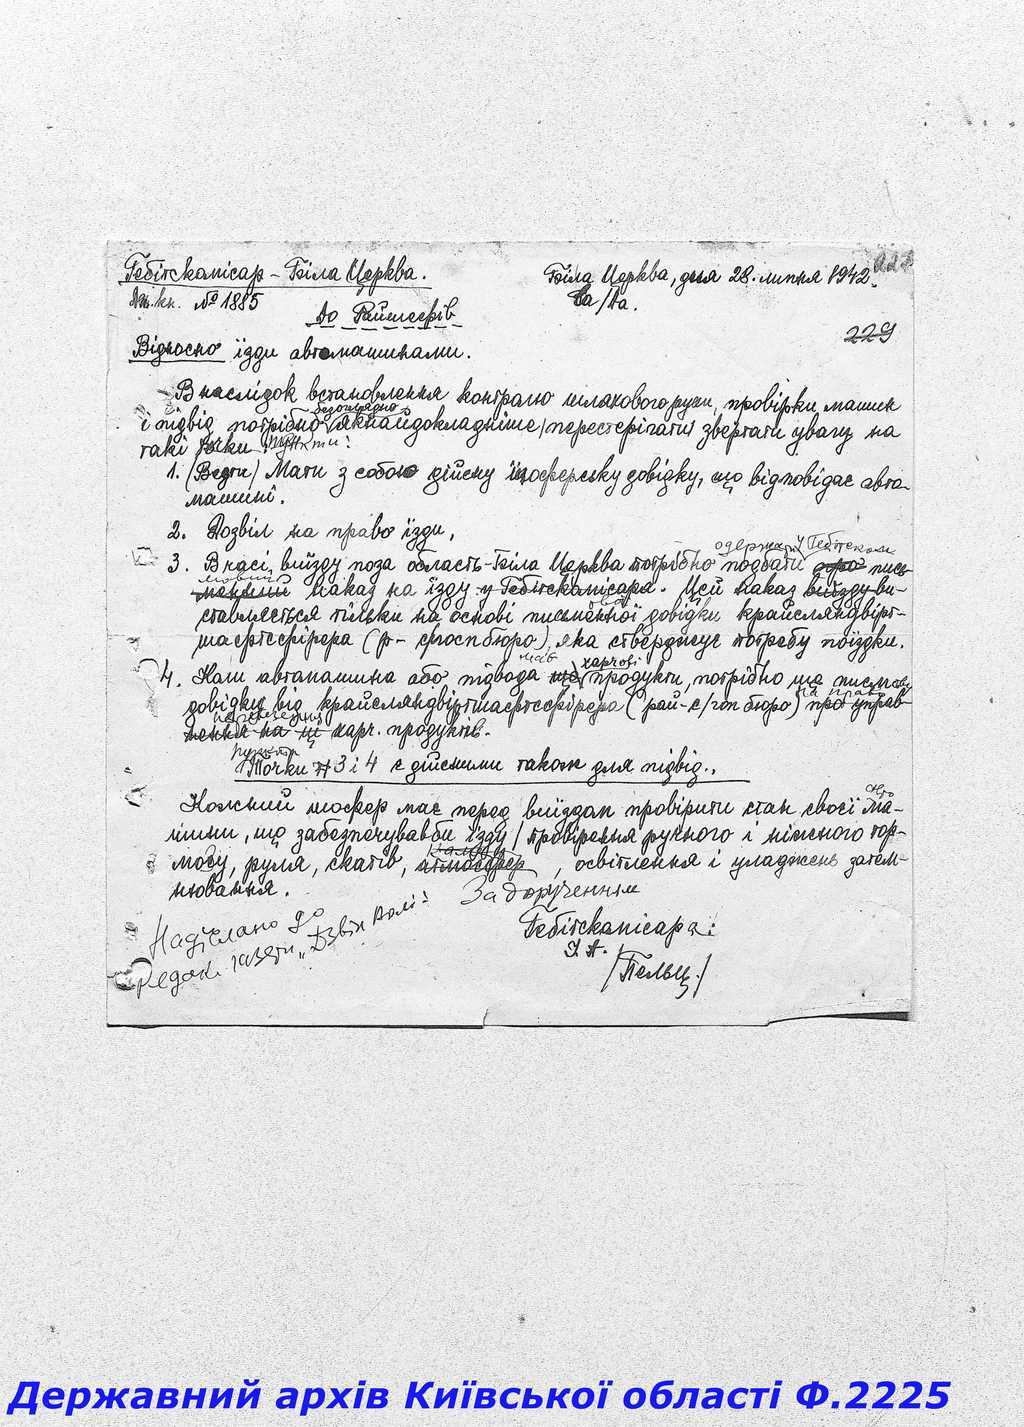 Гебітскомісар - Біла Церква.
Біла Церква, дня 28. липня 1942.
№ 1885
Ва/Да.
До Райшефів
229
Відносно їзди автомашинами.
Внаслідок встановлення контролю шляхового руху, провірки машин
безоглядно
і підвід потрібно якнайдокладніше /перестерігати/ звертати увагу на
такі точки пункти:
1. (Везти) Мати з собою дійсну шоферську довідку, що відповідає авто-
машині.
2. Дозвіл на право їзди,
одержати у Гебітском
3. В часі виїзду поза область - Біла Церква потрібно подбати про пись-
менний наказ на їзду у Гебітскомісара. Цей наказ виїзду ви-
ставляється тільки на основі письмової довідки крайсляндвірт-
шафтсфірера (р- с/госп бюро), яка стверджує потребу поїздки.
має харчові
4. Коли автомашина або підвода ще продукти, потрібно ще письмову
на право
довідку від крайсляндвіртшафтсфірера (рай- с/гоп бюро) про управ-
перевезення
лення на ці харч. продуктів.
пункти
Точки 3 і 4 є дійсними також для підвід.,
авто
Кожний шофер має перед виїздом провірити стан своєї ма-
шини, що забезпечував би їзду / провірення ручного і ніжного гор-
мозу, руля, скатів, атмосфер, освітлення і уладжень затем-
нювання.
За дорученням
Гебітскомісара:
І. А.
/Пельц./
Надіслано до
редак. газети „Дзвін Волі"
Державний архів Київської області Ф.2225